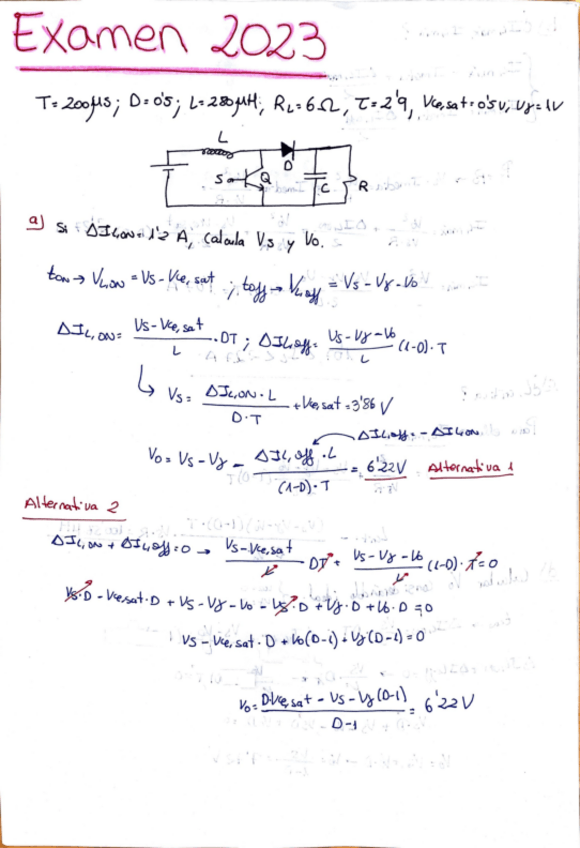 Examen 2023
T=200μs; D=0'5; L=280μH; RL=6Ω, τ=2'9, Vce,sat=0'5V, Vγ=1V
L
D
S
Q
C
R
a) Si ΔIL,ON=1'2 A, calcula Vs y Vo.
ton → VL,ON = Vs-Vce,sat ; toff → VL,off = Vs-Vγ-Vo
ΔIL,ON = (Vs-Vce,sat)/L · DT ; ΔIL,off = (Vs-Vγ-Vo)/L (1-D)·T
↳ Vs = (ΔIL,ON·L)/(D·T) + Vce,sat = 3'86 V
ΔIL,off = -ΔIL,ON
Vo = Vs-Vγ - (ΔIL,off·L)/((1-D)·T) = 6'22V Alternativa 1
Alternativa 2
ΔIL,ON + ΔIL,off = 0 → (Vs-Vce,sat)/L DT + (Vs-Vγ-Vo)/L (1-D)·T = 0
Vs·D - Vce,sat·D + Vs - Vγ - Vo - Vs·D + Vγ·D + Vo·D = 0
Vs - Vce,sat·D + Vo(D-1) + Vγ(D-1) = 0
Vo = (D·Vce,sat - Vs - Vγ(D-1))/(D-1) = 6'22V